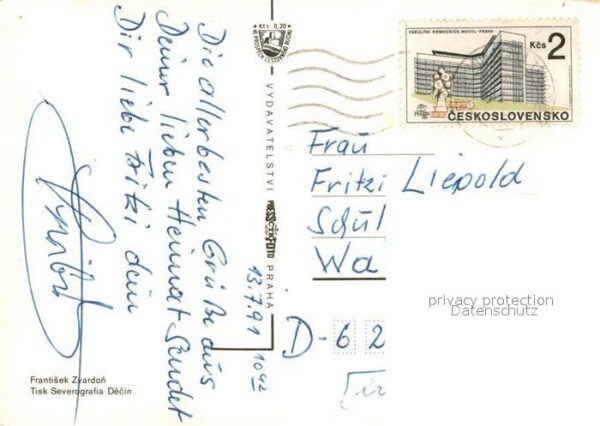 Die allerbesten Grüße aus
Deiner lieben Heimat sendet
Dir liebe Fritzi dein
František Zvardoň
Tisk Severografia Děčín
Kčs 0,20
VYDAVATELSTVÍ PRESSFOTO PRAHA
13.7.91 1042
FAKULTNÍ NEMOCNICE MOTOL - PRAHA
Kčs 2
ČESKOSLOVENSKO
Frau
Fritzi Liepold
Schul
Wa
D-62
privacy protection
Datenschutz